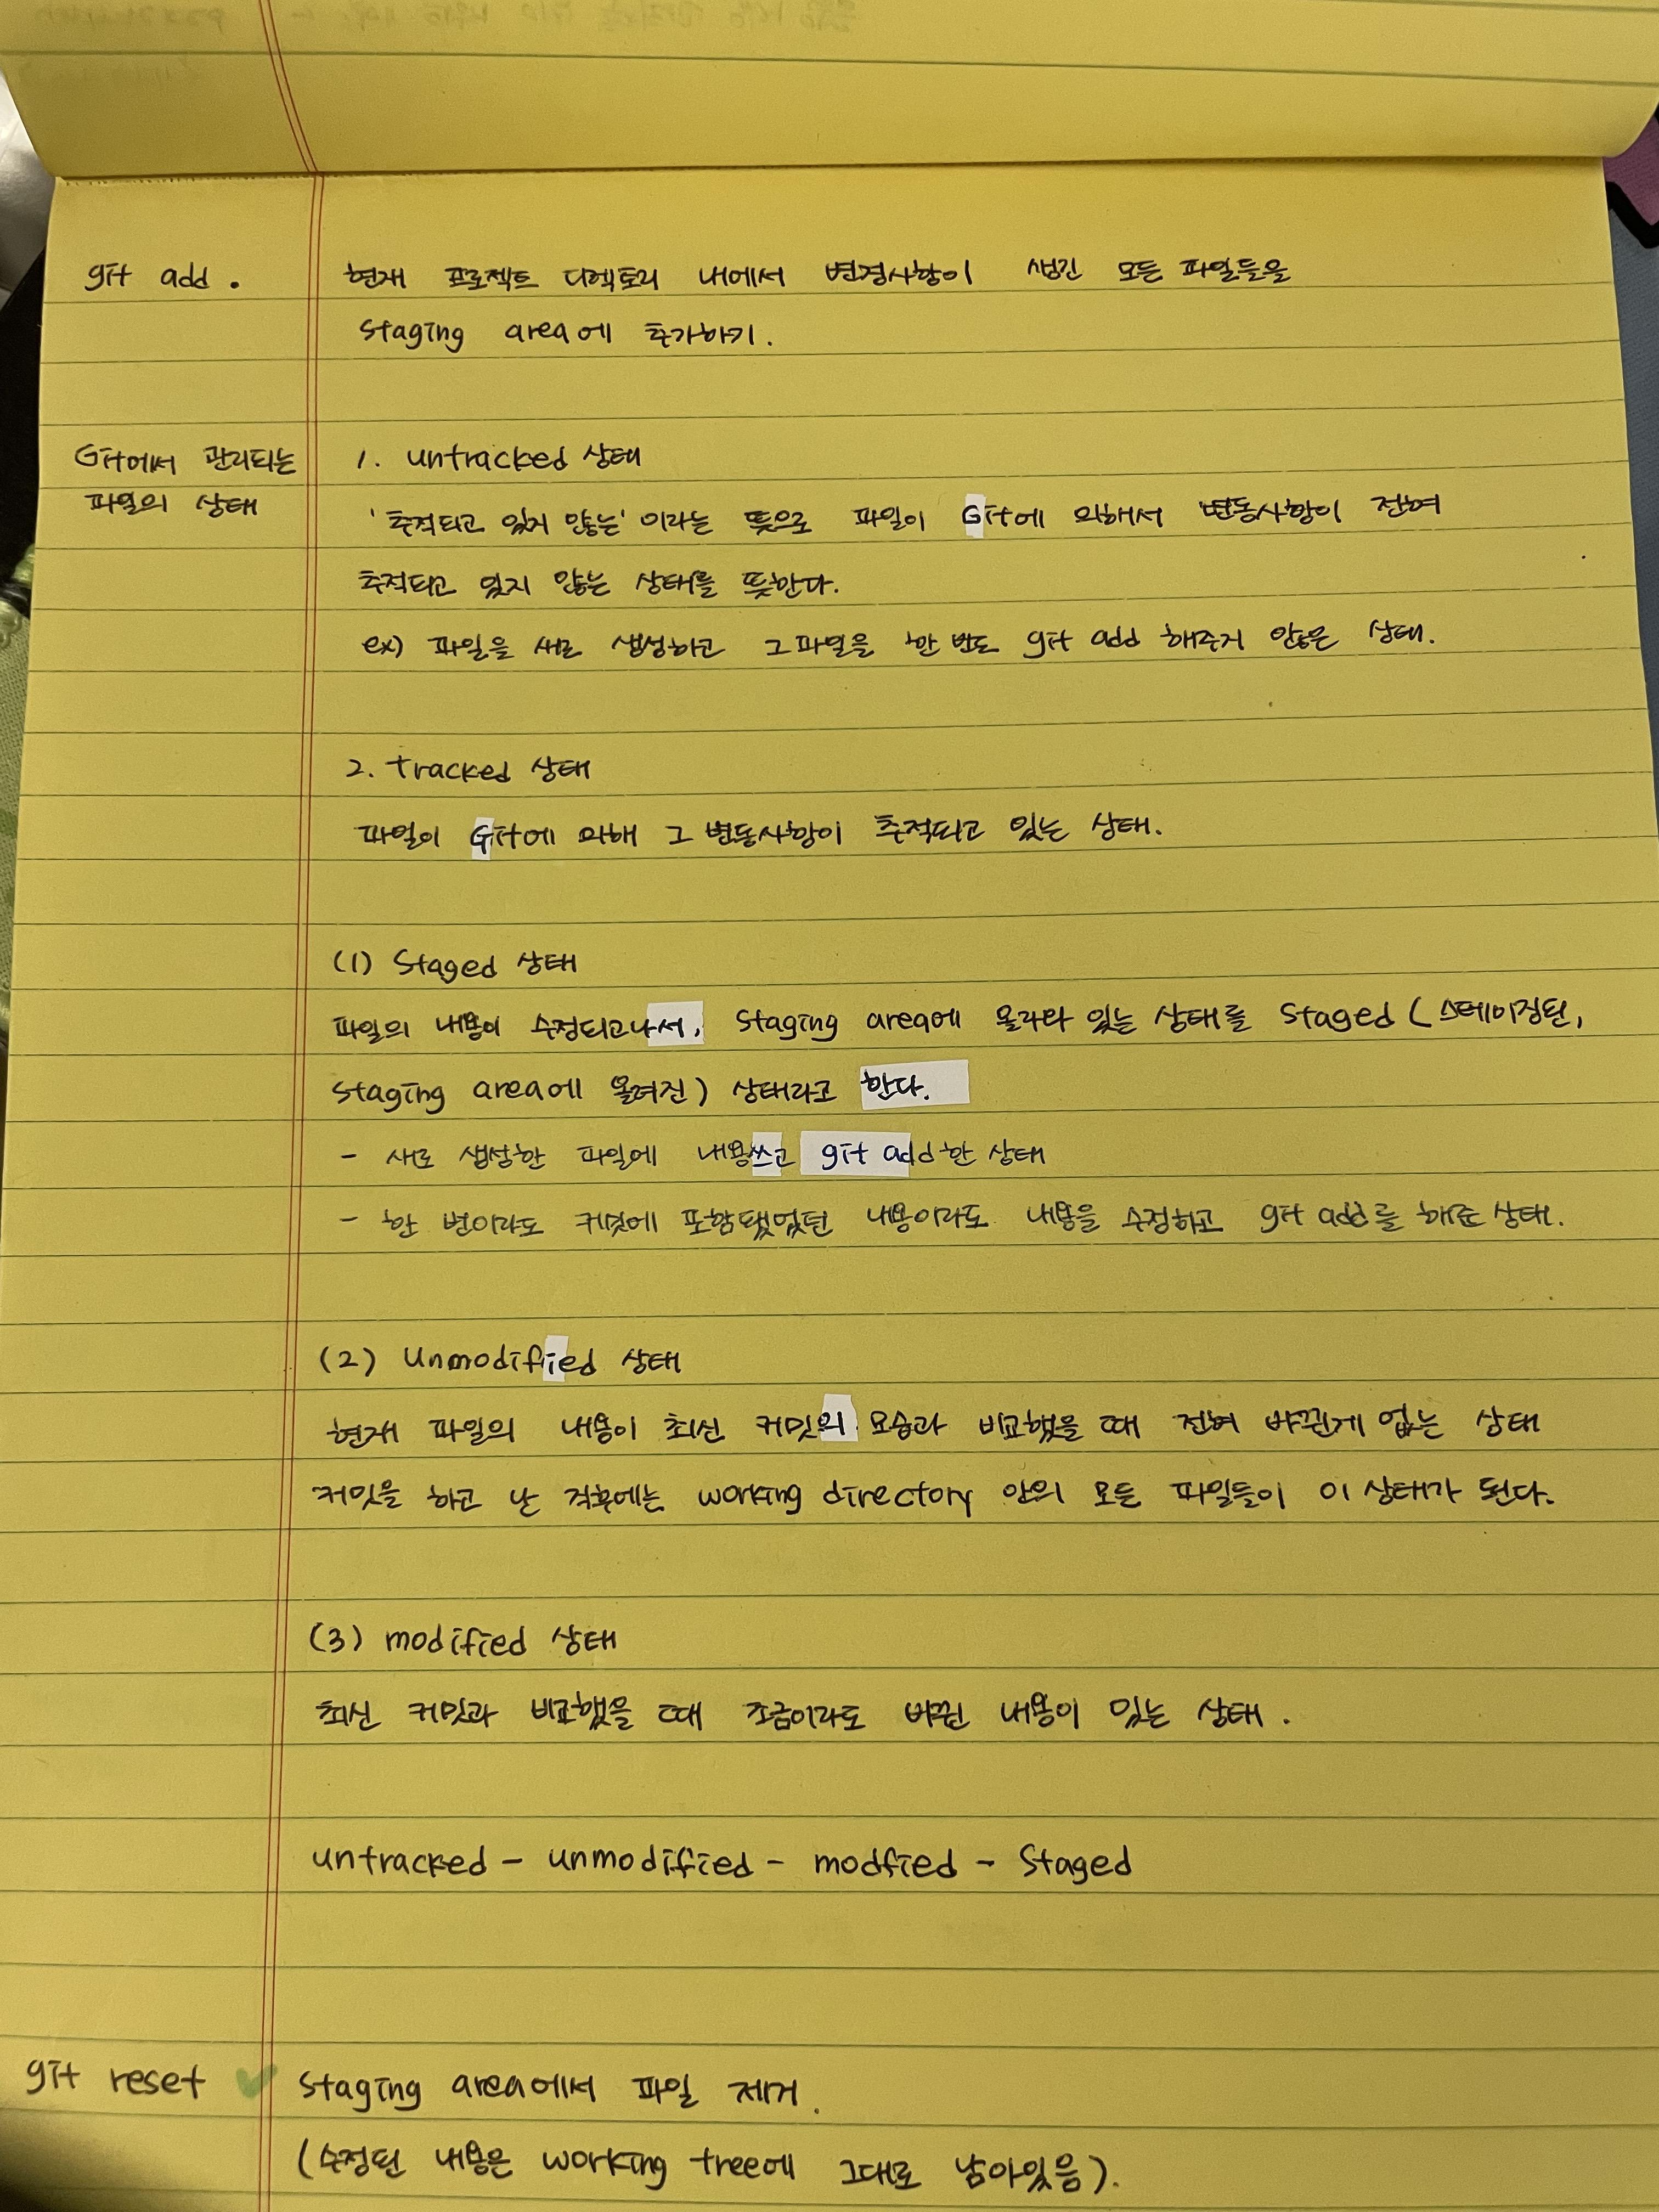 git add .
현재 프로젝트 디렉토리 내에서 변경사항이 생긴 모든 파일들을
staging area에 추가하기.
Git에서 관리되는
파일의 상태
1. untracked 상태
'추적되고 있지 않는' 이라는 뜻으로 파일이 Git에 의해서 변동사항이 전혀
추적되고 있지 않는 상태를 뜻한다.
ex) 파일을 새로 생성하고 그 파일을 한 번도 git add 해주지 않은 상태.
2. tracked 상태
파일이 Git에 의해 그 변동사항이 추적되고 있는 상태.
(1) Staged 상태
파일의 내용이 수정되고나서, staging area에 올라와 있는 상태를 Staged (스테이징된,
staging area에 올려진) 상태라고 한다.
- 새로 생성한 파일에 내용쓰고 git add한 상태
- 한 번이라도 커밋에 포함됐었던 내용이라도 내용을 수정하고 git add를 해준 상태.
(2) Unmodified 상태
현재 파일의 내용이 최신 커밋의 모습과 비교했을 때 전혀 바뀐게 없는 상태
커밋을 하고 난 직후에는 working directory 안의 모든 파일들이 이 상태가 된다.
(3) modified 상태
최신 커밋과 비교했을 때 조금이라도 바뀐 내용이 있는 상태.
untracked - unmodified - modfied - Staged
git reset ✓
staging area에서 파일 제거.
(수정된 내용은 working tree에 그대로 남아있음).